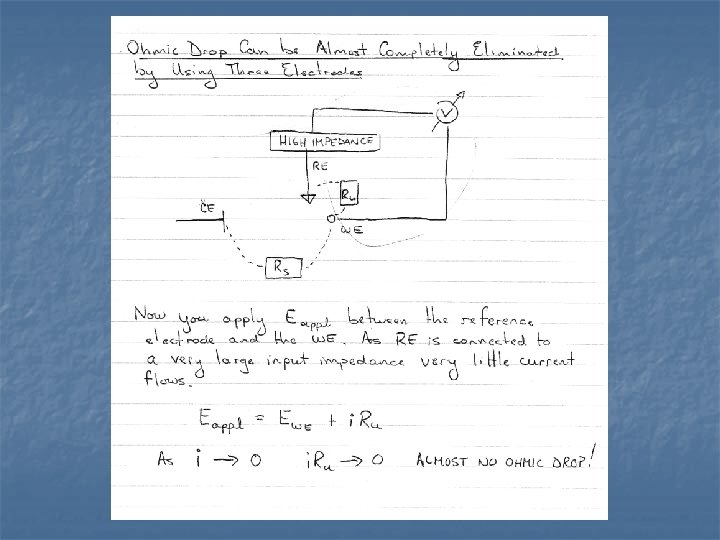 Ohmic Drop Can be Almost Completely Eliminated
by Using Three Electrodes
V
HIGH IMPEDANCE
RE
Ru
CE
WE
Rs
Now you apply Eappl between the reference
electrode and the WE. As RE is connected to
a very large input impedance very little current
flows.
Eappl = EWE + iRu
As i → 0 iRu → 0 ALMOST NO OHMIC DROP!